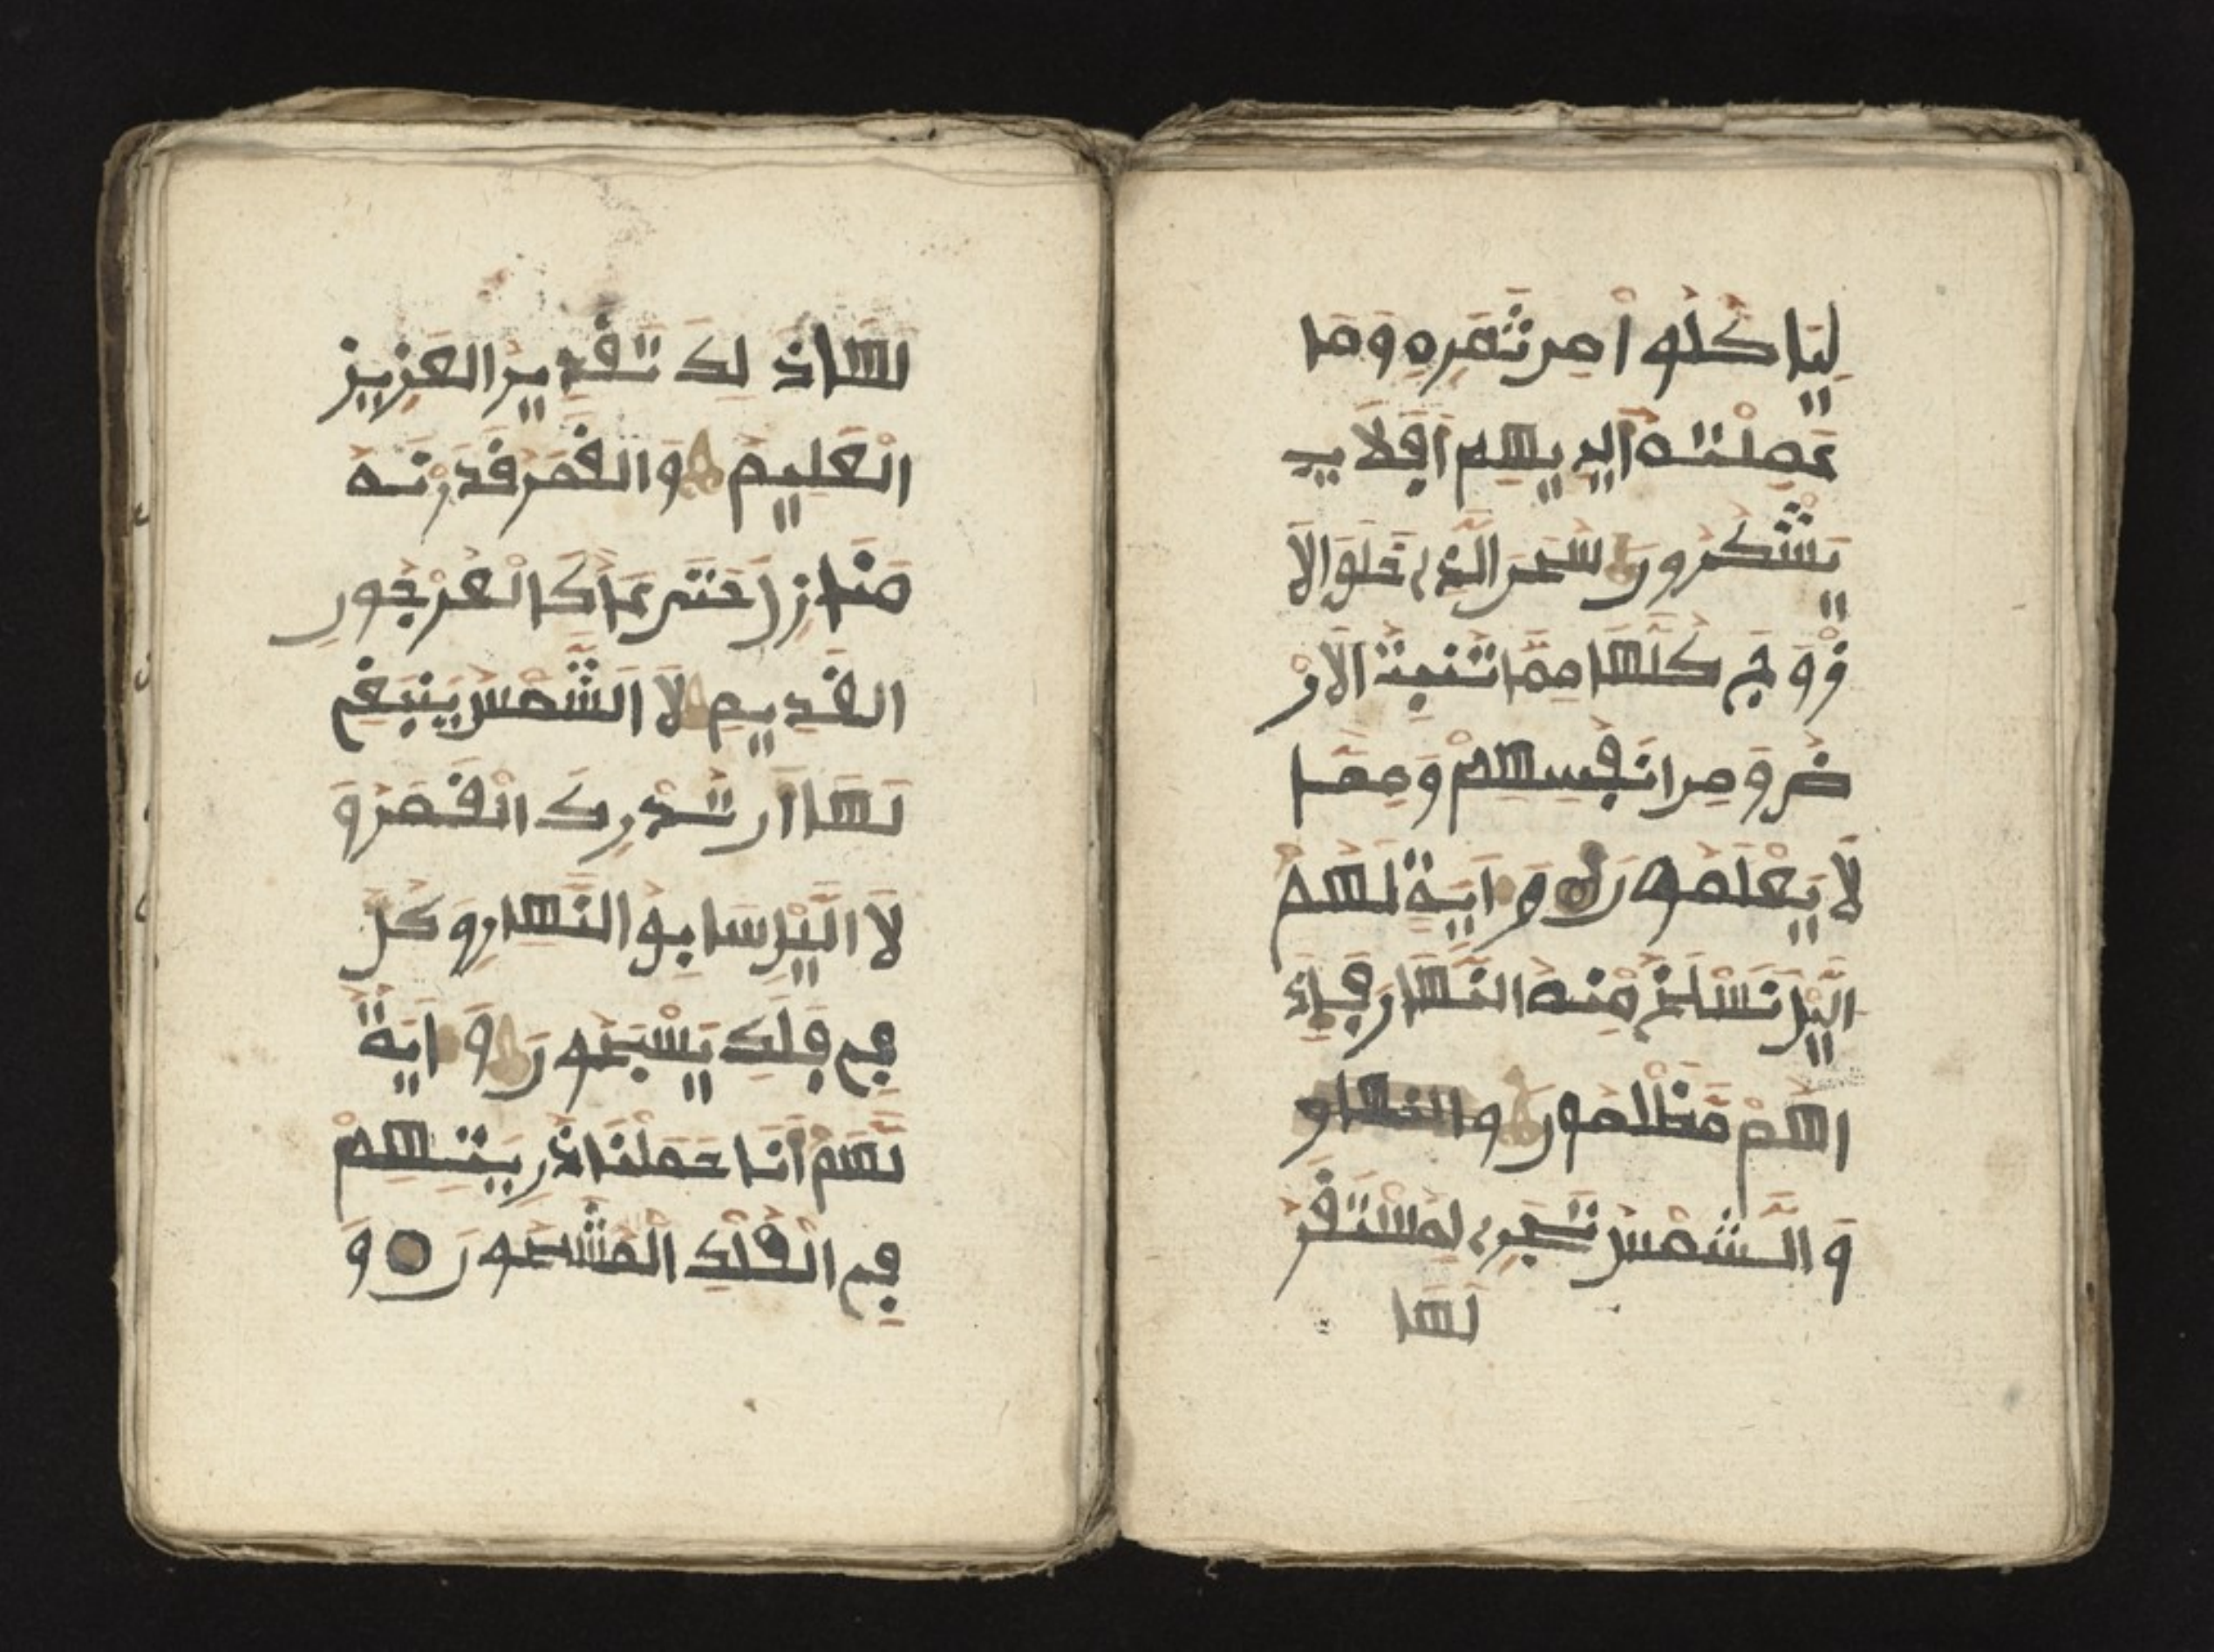 لِيَاكُلُواْ مِن ثَمَرِهِ وَمَا
عَمِلَتْهُ أَيْدِيهِمْ أَفَلَا
يَشْكُرُونَ سُبْحَٰنَ الَّذِے خَلَقَ الَا
زْوَٰجَ كُلَّهَا مِمَّا تُنۢبِتُ الَارْ
ضُ وَمِنَ انفُسِهِمْ وَمِمَّا
لَا يَعْلَمُونَ وَءَايَةٌ لَّهُمُ
الَّيْلُ نَسْلَخُ مِنْهُ النَّهَارَ فَإِذَا
هُم مُّظْلِمُونَ
وَالشَّمْسُ تَجْرِے لِمُسْتَقَرٍّ
لَهَا
لَهَا ذَٰلِكَ تَقْدِيرُ الْعَزِيزِ
الْعَلِيمِ وَالْقَمَرُ قَدَّرْنَٰهُ
مَنَازِلَ حَتَّىٰ عَادَ كَالْعُرْجُونِ
الْقَدِيمِ لَا الشَّمْسُ يَنۢبَغِے
لَهَا أَن تُدْرِكَ الْقَمَرَ وَ
لَا الَّيْلُ سَابِقُ النَّهَارِ وَكُلٌّ
فِے فَلَكٍ يَسْبَحُونَ وَءَايَةٌ
لَّهُمُ أَنَّا حَمَلْنَا ذُرِّيَّتَهُمْ
فِے الْفُلْكِ الْمَشْحُونِ وَ